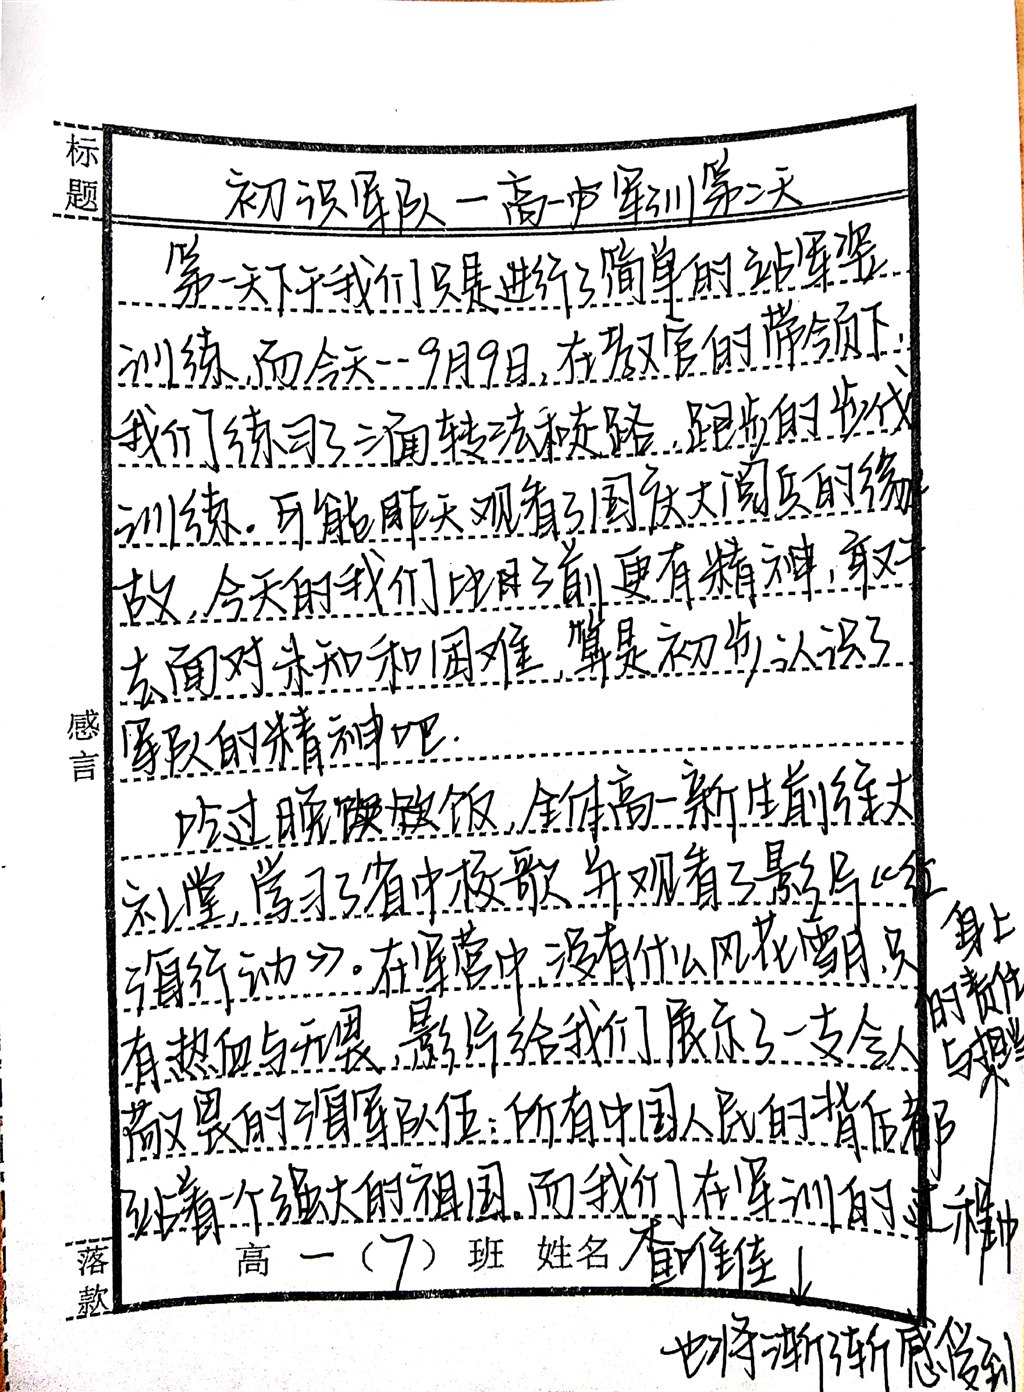 标题
初识军队一高一中军训第二天
第一天下午我们只是进行了简单的站军姿
训练,而今天--9月9日,在教官的带领下,
我们练习了三面转法和走路、跑步的步伐
训练。可能昨天观看了国庆大阅兵的缘
故,今天的我们比日前更有精神,敢于
去面对未知和困难,算是初步认识了
军队的精神吧.
感言
吃过晚饭,全体高一新生前往大
礼堂,学习了省中校歌并观看了影片《红
海行动》。在军营中,没有什么风花雪月,只
有热血与无畏,影片给我们展示了一支令人
敬畏的海军队伍:所有中国人民的背后都
站着一个强大的祖国.而我们在军训的过程中
落款
高一(7)班 姓名 查唯佳
也将渐渐感受到
身上
的责任
与担当